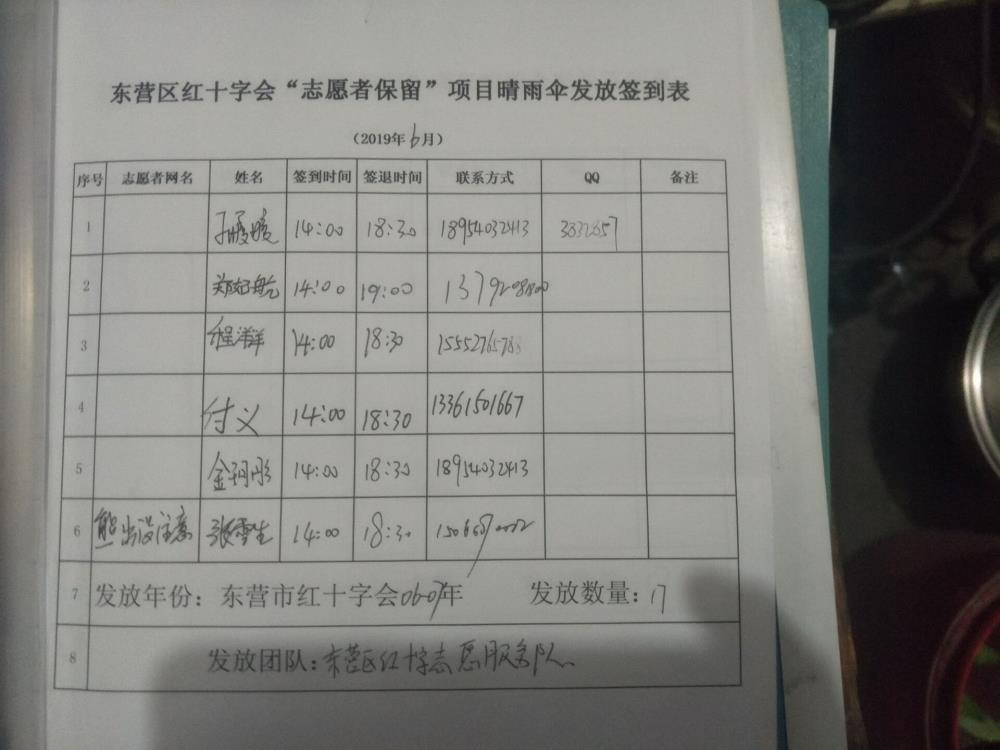 东营区红十字会“志愿者保留”项目晴雨伞发放签到表
（2019年6月）
序号 志愿者网名 姓名 签到时间 签退时间 联系方式 QQ 备注
1 14:00 18:30 18954032413
2 14:00 19:00
3 程洋洋 14:00 18:30
4 付义 14:00 18:30 13361501667
5 14:00 18:30 18954032413
6 熊出没注意 张雪生 14:00 18:30
7 发放年份：东营市红十字会 年 发放数量：17
8 发放团队：东营区红十字志愿服务队